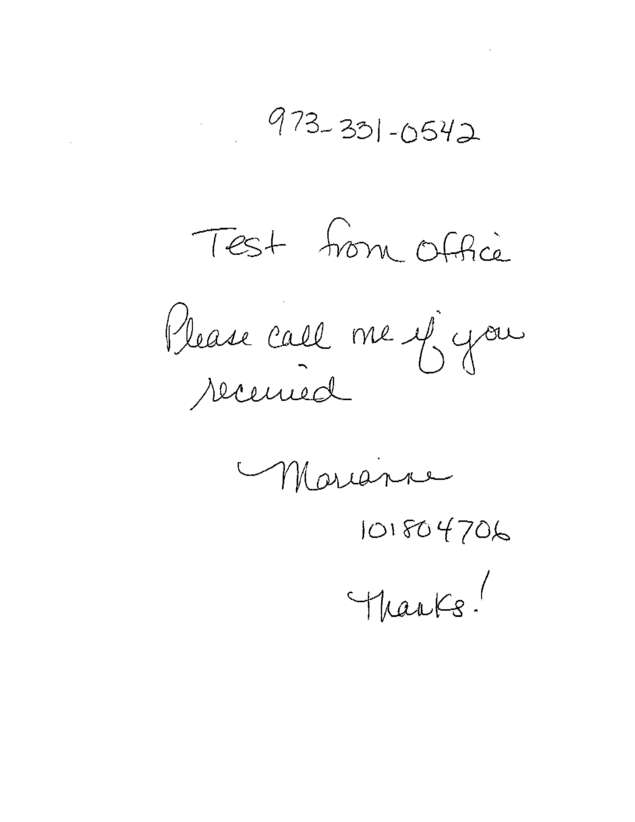 973-331-0542
Test from office
Please call me if you
received
Marianne
101804706
Thanks!